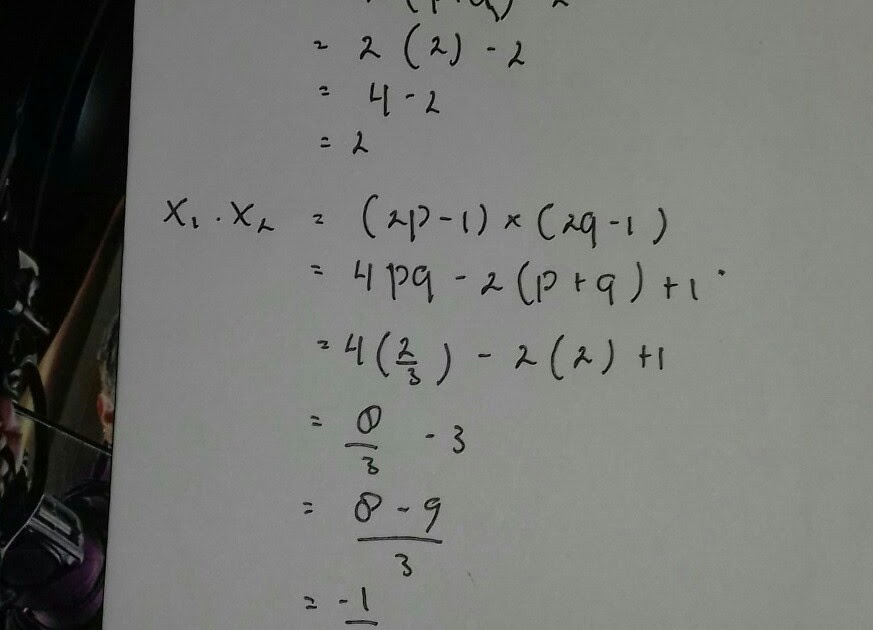 (p+q) - 2
= 2 (2) - 2
= 4 - 2
= 2
X₁ . X₂ = (2p-1) × (2q-1)
= 4pq - 2(p+q) + 1
= 4(2/3) - 2(2) + 1
= 8/3 - 3
= (8-9)/3
= -1